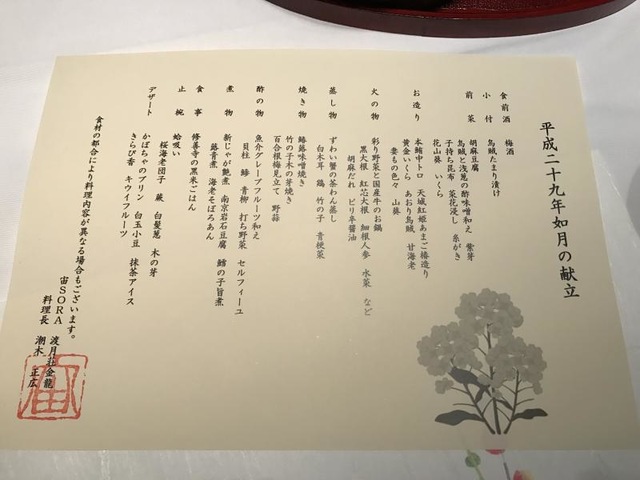 平成二十九年如月の献立
食前酒 梅酒
小付 烏賊たまり漬け
前菜 胡麻豆腐
烏賊と浅葱の酢味噌和え 紫芽
子持ち昆布 菜花浸し 糸がき
花山葵 いくら
お造り 本鮪中トロ 天城紅姫あまご椿造り
黄金いくら あおり烏賊 甘海老
妻もの色々 山葵
火の物 彩り野菜と国産牛のお鍋
黒大根 紅芯大根 細根人参 水菜 など
胡麻だれ ピリ辛醤油
蒸し物 ずわい蟹の茶わん蒸し
白木茸 鶏 竹の子 青梗菜
焼き物 鰆蕗味噌焼き
竹の子木の芽焼き
百合根梅見立て 野蒜
酢の物 魚介グレープフルーツ和え
貝柱 鰆 青柳 打ち野菜 セルフィーユ
煮物 新じゃが艶煮 南京岩石豆腐 鱈の子旨煮
蕗青煮 海老そぼろあん
食事 修善寺の黒米ごはん
止椀 蛤吸い
桜海老団子 蕨 白髪葱 木の芽
デザート かぼちゃのプリン 白玉小豆 抹茶アイス
きらぴ香 キウイフルーツ
食材の都合により料理内容が異なる場合もございます。
宙SORA 渡月荘金龍
料理長 潮木 正広
宙